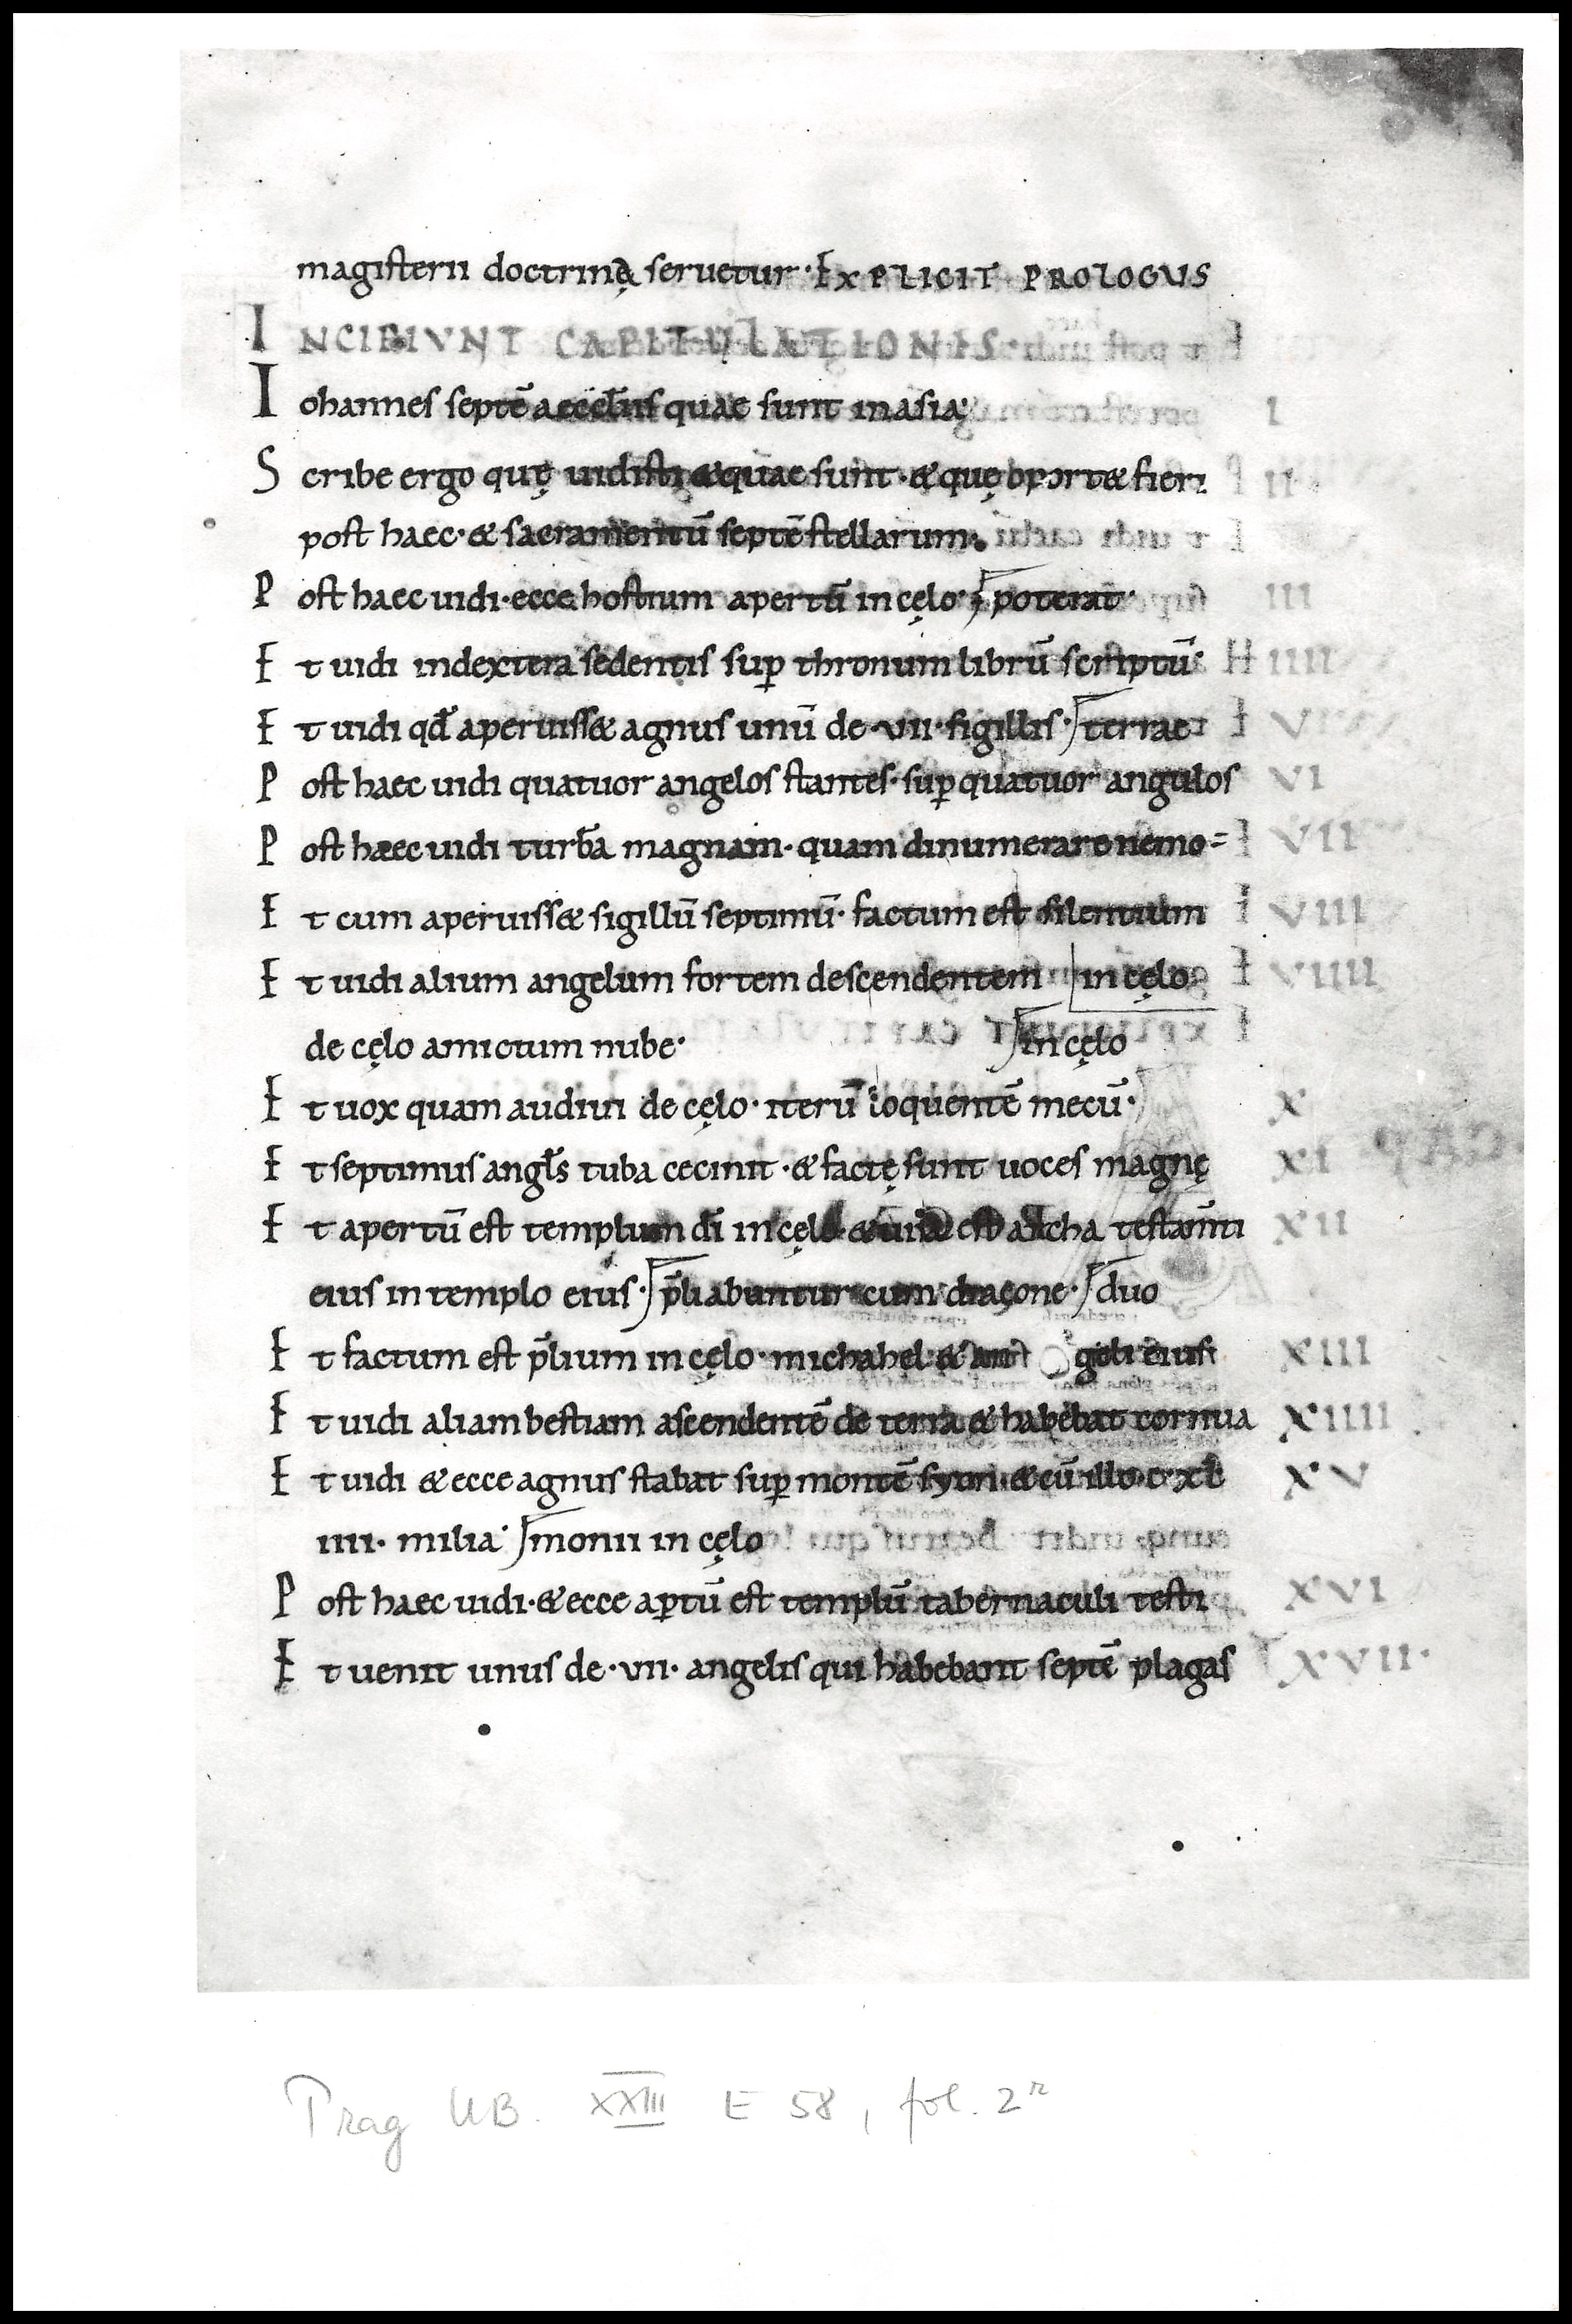 magisterii doctrinę seruetur · EXPLICIT PROLOGUS
INCIPIVNT CAPITULATIONIS·
Iohannes septē aeccl̄iis quae sunt in asia; I
Scribe ergo quę uidisti & quae sunt · & quę oport& fieri II
post haec · & sacramentū septē stellarum·
Post haec uidi · ecce hostium apertū in cęlo · poterat · III
Et uidi in dextera sedentis sup̄ thronum librū scriptū · IIII
Et uidi qd̄ aperuiss& agnus unū de · VII · sigillis · terrae V
Post haec uidi quatuor angelos stantes · sup̄ quatuor angulos VI
Post haec uidi turbā magnam · quam dinumerare nemo = VII
Et cum aperuiss& sigillū septimū · factum est silentium VIII
Et uidi alium angelum fortem descendentem in cęlo VIIII
de cęlo amictum nube · in cęlo
Et uox quam audiui de cęlo · iterū loquentē mecū · X
Et septimus angl̄s tuba cecinit · & factę sunt uoces magnę XI
Et apertū est templum dī in cęlo · & uisa est archa testam̄ti XII
eius in templo eius · p̄liabuntur cum dracone · duo
Et factum est p̄lium in cęlo · michahel & angeli eius XIII
Et uidi aliam bestiam ascendentē de terra & habebat cornua XIIII
Et uidi & ecce agnus stabat sup̄ montē syon · & cū illo · c · xl XV
IIII · milia · monii in cęlo
Post haec uidi · & ecce ap̄tū est templū tabernaculi testi XVI
Et uenit unus de · VII · angelis qui habebant septē plagas XVII ·
Prag UB. XXIII E 58, fol. 2r